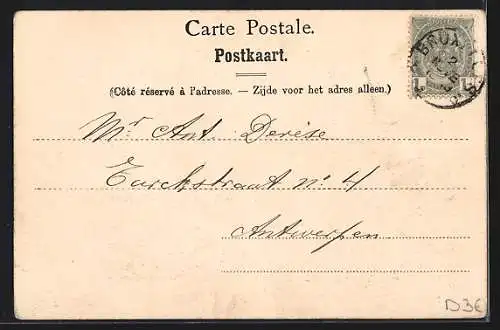 Carte Postale.
Postkaart.
(Côté réservé à l'adresse. — Zijde voor het adres alleen.)
Mr Ant. Derèse
Turckstraat no 4
Antwerpen
BRUX
1 1
D3€